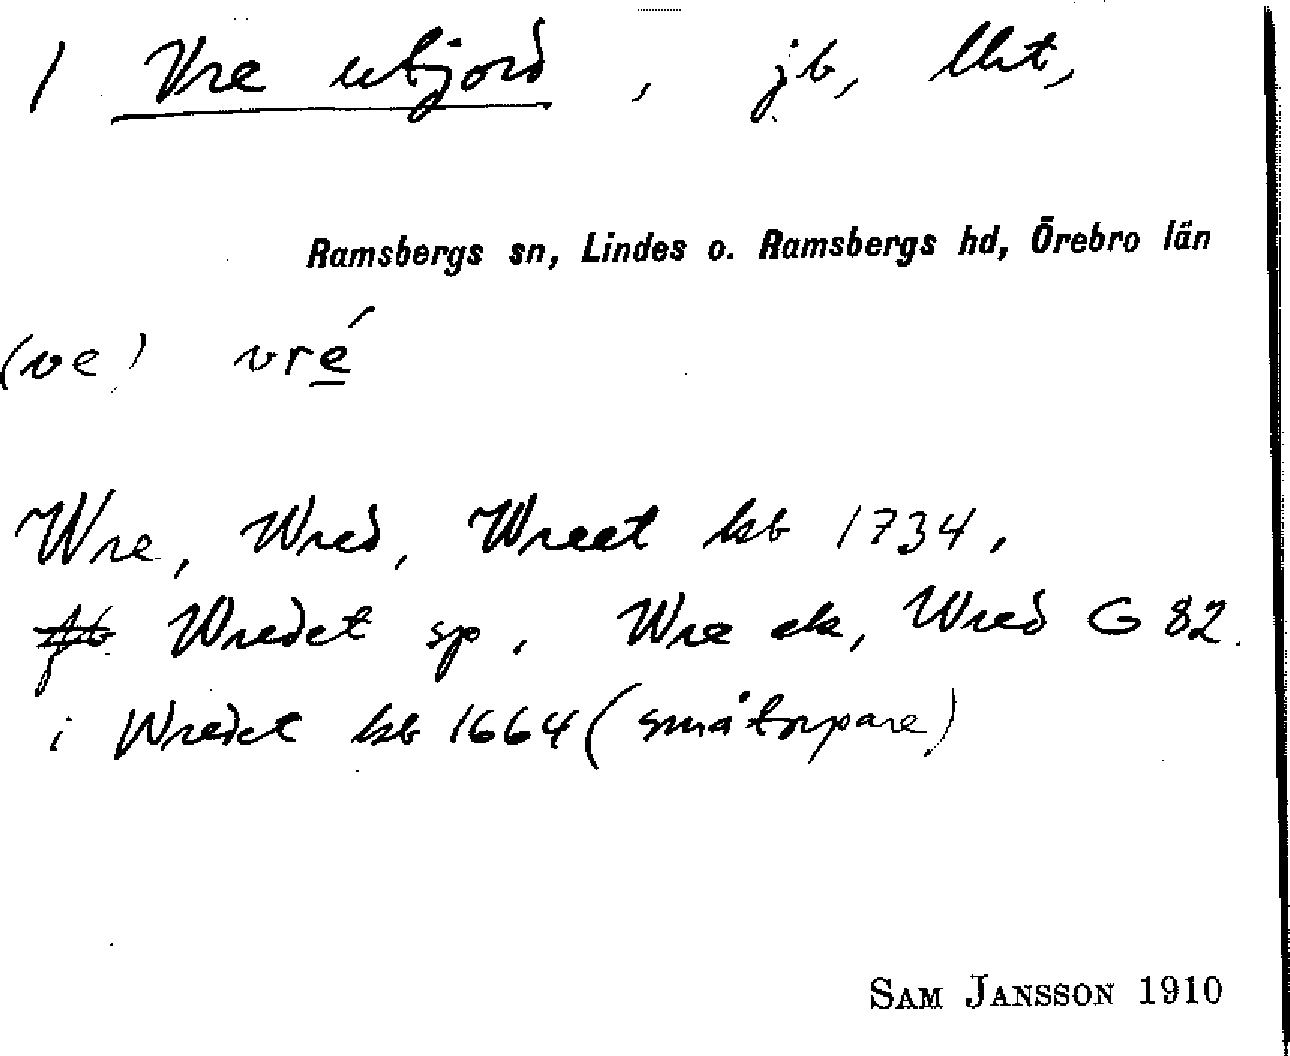 1 Vre utjord, jb, lht,
Ramsbergs sn, Lindes o. Ramsbergs hd, Örebro län
(ve) vré
Wre, Wred, Wreet kb 1734,
Wredet sp. Wre ek, Wred G 82.
i Wredet kb 1664 (småtorpare)
SAM JANSSON 1910